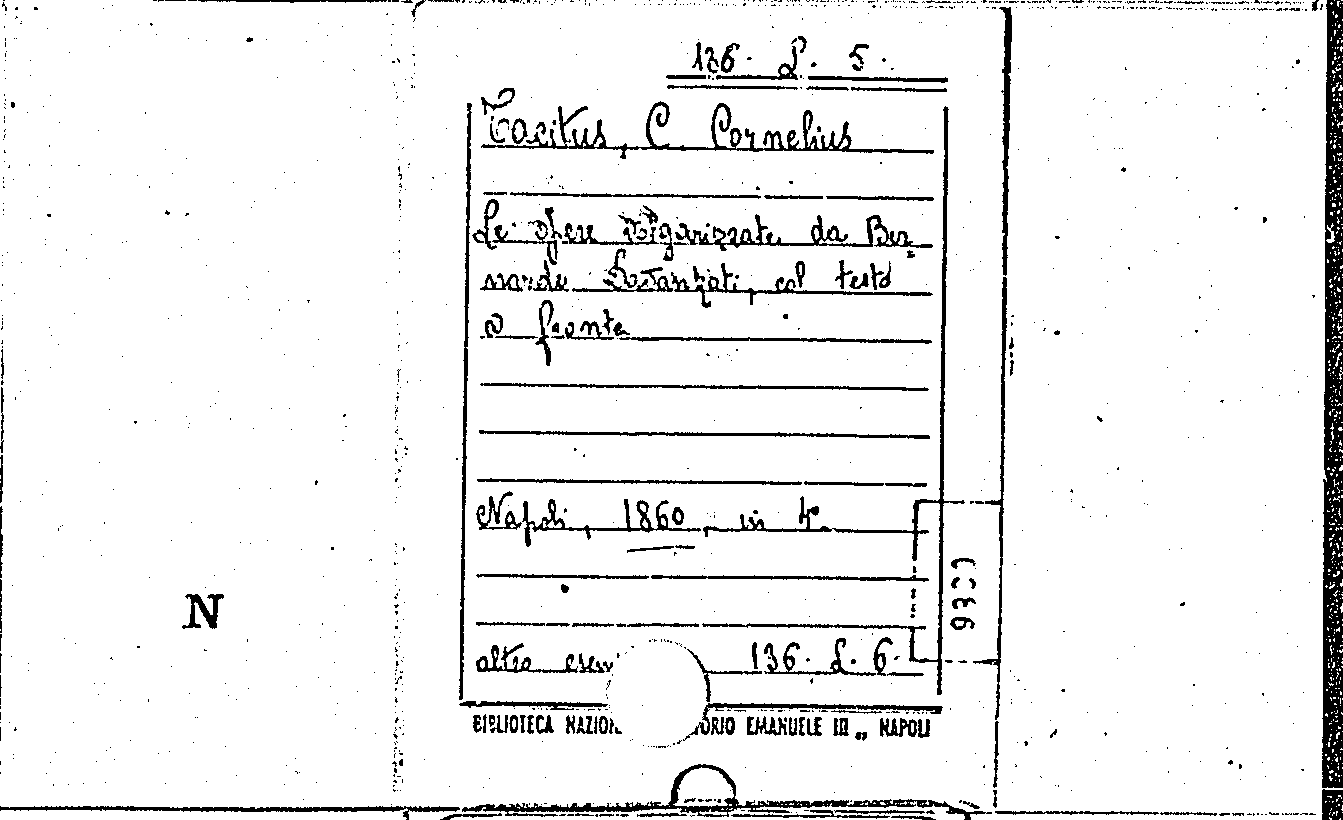 136. L. 5.
Tacitus, C. Cornelius
Le opere volgarizzate da Ber-
nardo Davanzati, col testo
a fronte
Napoli, 1860, in 4°.
N
altro esem 136. L. 6.
BIBLIOTECA NAZION TORIO EMANUELE III „ NAPOLI